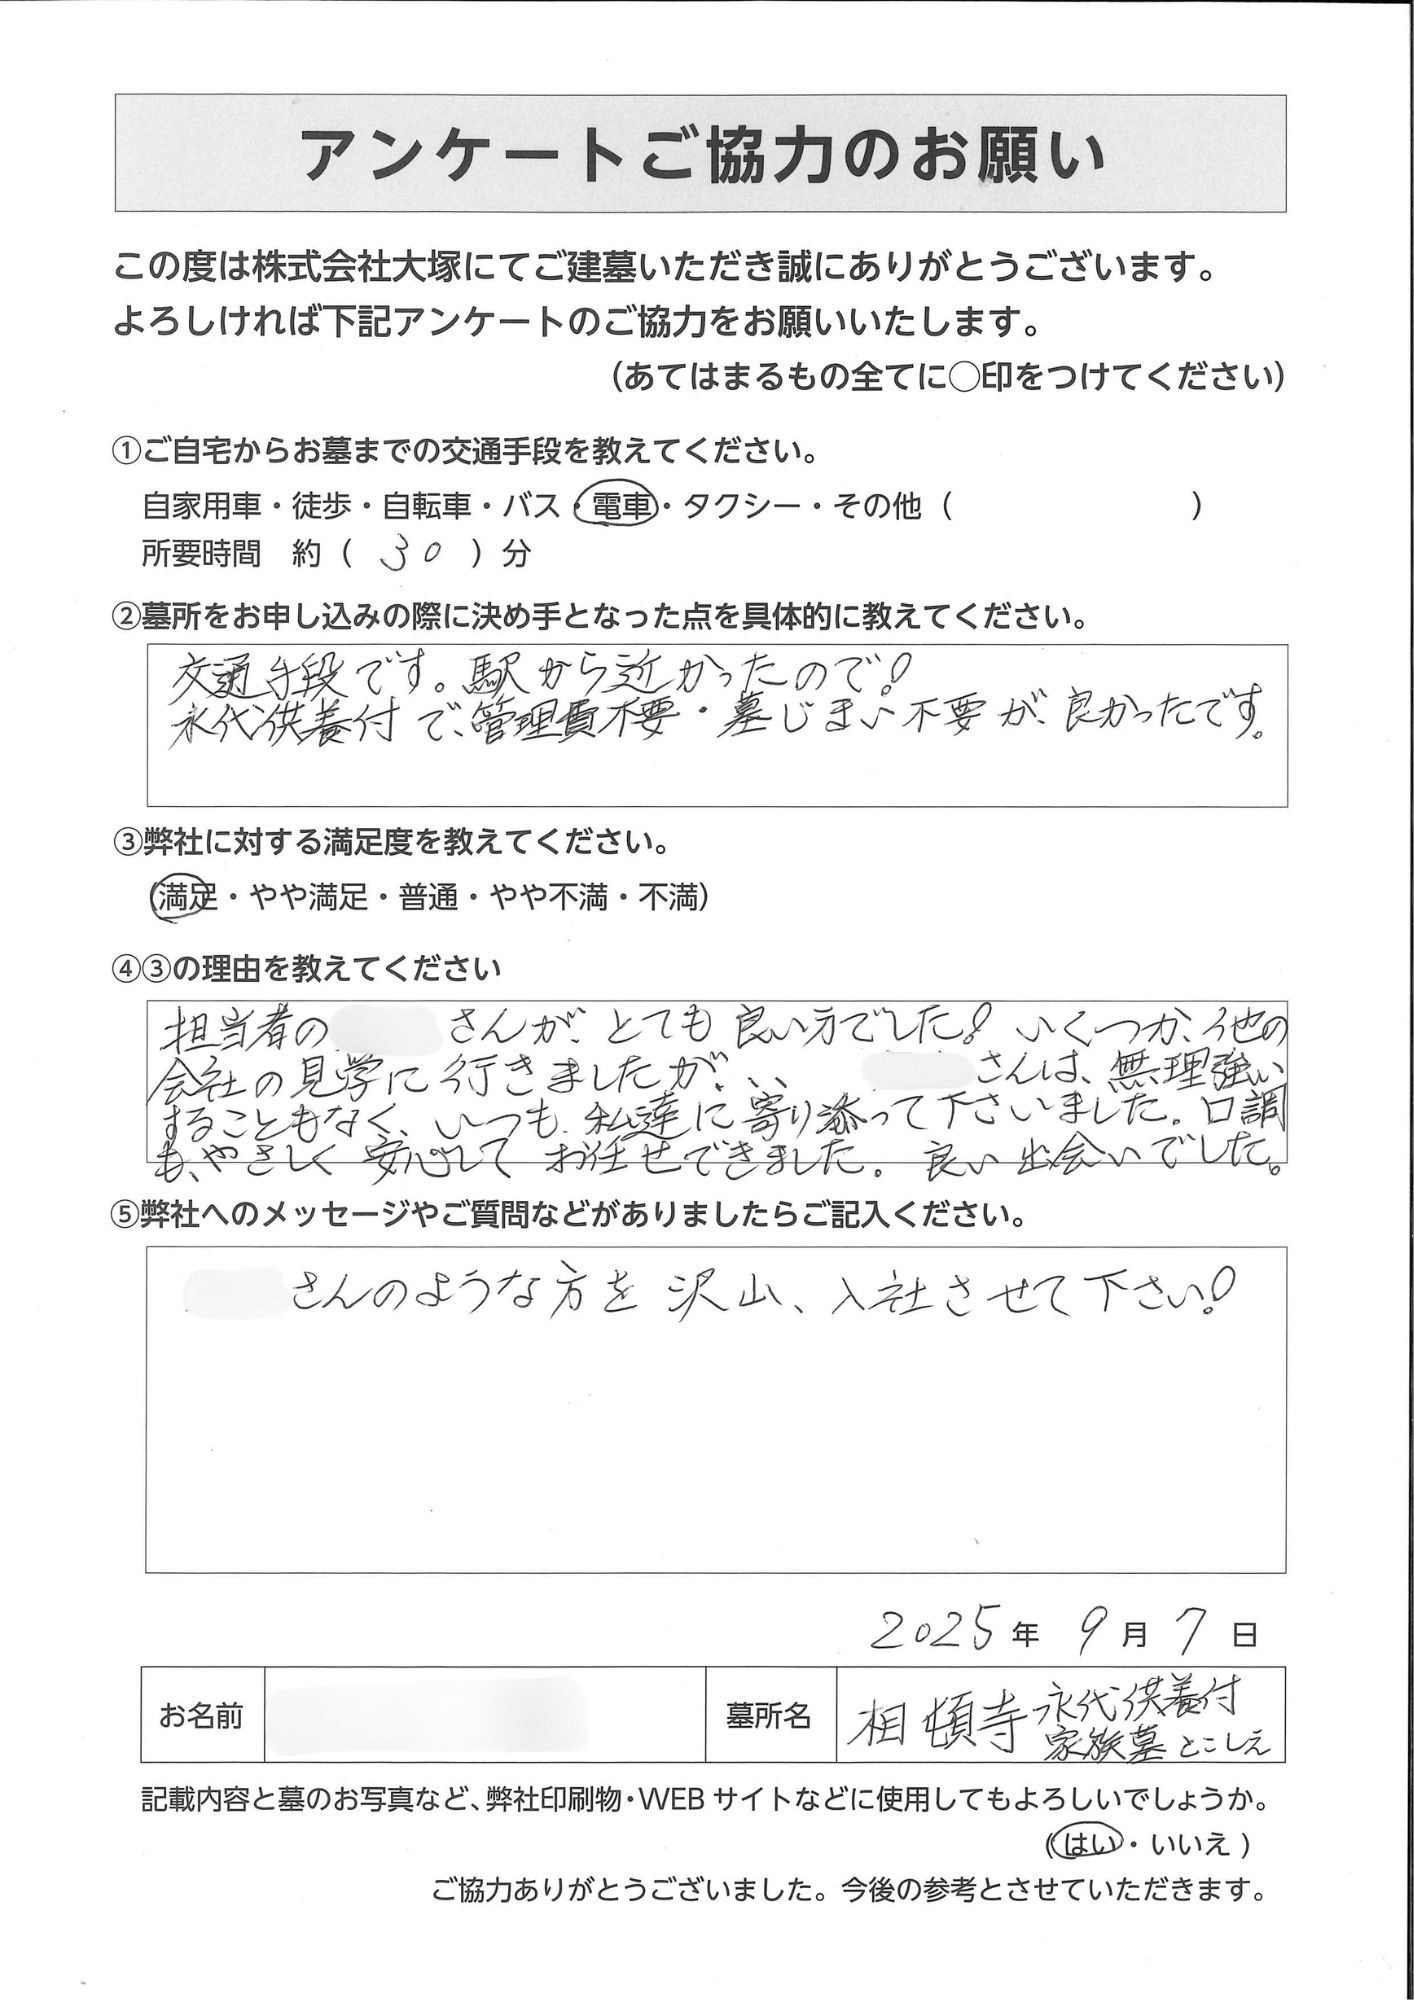 アンケートご協力のお願い
この度は株式会社大塚にてご建墓いただき誠にありがとうございます。
よろしければ下記アンケートのご協力をお願いいたします。
（あてはまるもの全てに○印をつけてください）
①ご自宅からお墓までの交通手段を教えてください。
自家用車・徒歩・自転車・バス・電車・タクシー・その他（　　　　　　　　）
所要時間　約（ 30 ）分
②墓所をお申し込みの際に決め手となった点を具体的に教えてください。
交通手段です。駅から近かったので！
永代供養付で、管理費不要・墓じまい不要が、良かったです。
③弊社に対する満足度を教えてください。
（満足・やや満足・普通・やや不満・不満）
④③の理由を教えてください
担当者の　　　さんが、とても良い方でした！いくつか、他の
会社の見学に行きましたが、、、　　　さんは、無理強い
することもなく、いつも、私達に寄り添って下さいました。口調
も、やさしく安心して お任せできました。良い出会いでした。
⑤弊社へのメッセージやご質問などがありましたらご記入ください。
さんのような方を沢山、入社させて下さい！
2025年 9月 7日
お名前　　墓所名　相頓寺 永代供養付
家族墓 とこしえ
記載内容と墓のお写真など、弊社印刷物・WEBサイトなどに使用してもよろしいでしょうか。
（はい・いいえ）
ご協力ありがとうございました。今後の参考とさせていただきます。